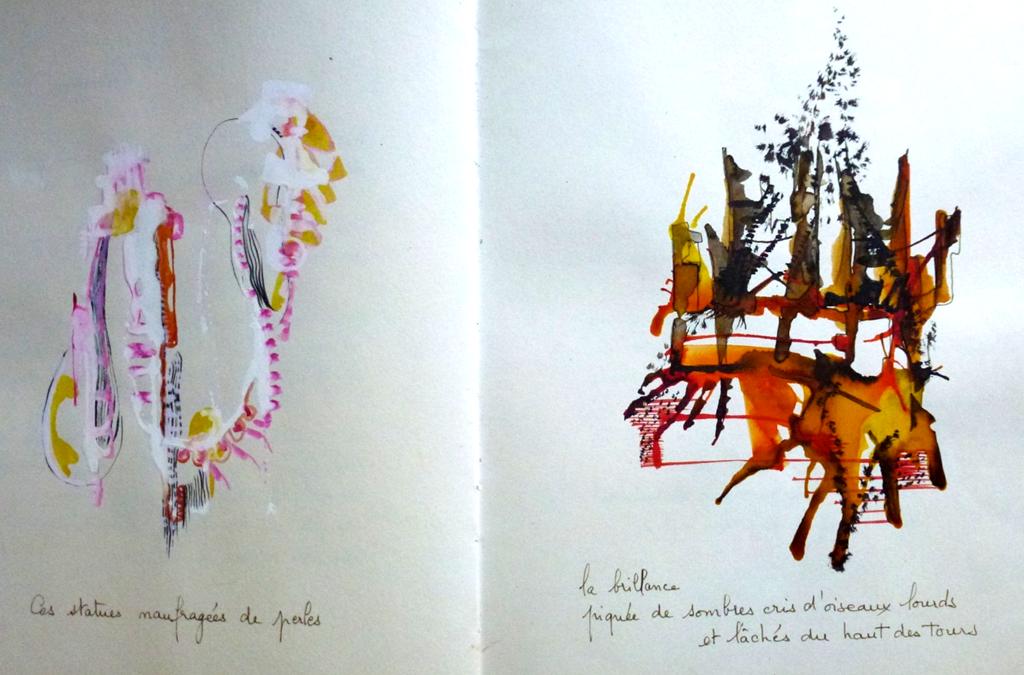 Ces statues naufragées de perles
la brillance
piquée de sombres cris d'oiseaux lourds
et lâchés du haut des tours